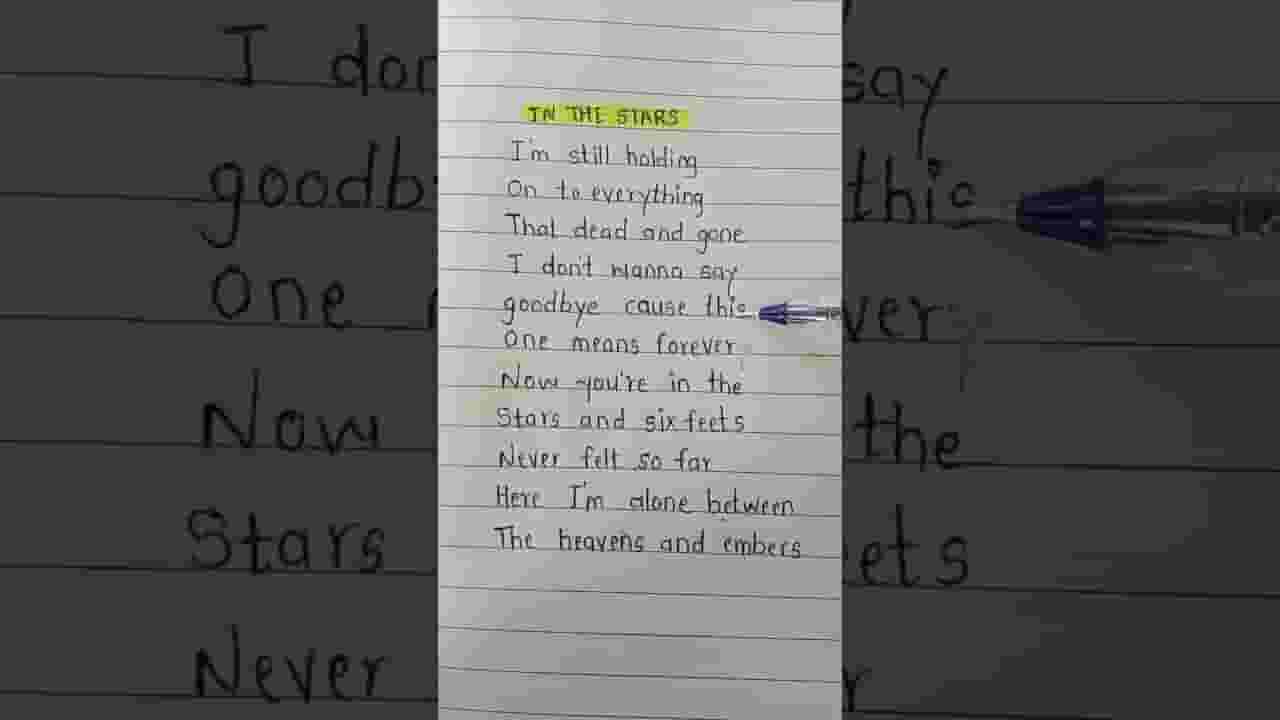 IN THE STARS
I'm still holding
On to everything
That dead and gone
I don't wanna say
goodbye cause this
One means forever
Now you're in the
Stars and six feets
Never felt so far
Here I'm alone between
The heavens and embers